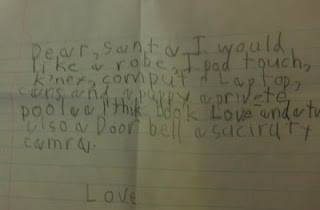 Dear, santa I would
like a robe I pod touch,
k'nex, comput a Laptop,
cars and a puppy a private
pool a a "thik book Love and a tv
also a Door bell a suciraty
camra.
Love